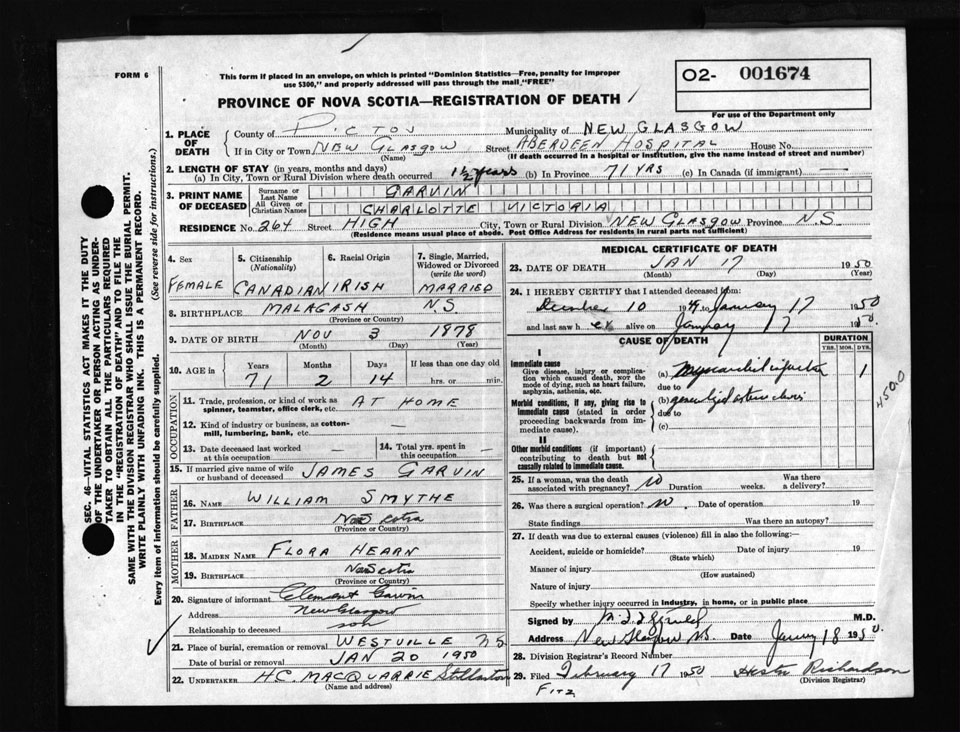 FORM 6
This form if placed in an envelope, on which is printed "Dominion Statistics—Free, penalty for improper
use $300," and properly addressed will pass through the mail "FREE"
O2- 001674
For use of the Department only
PROVINCE OF NOVA SCOTIA—REGISTRATION OF DEATH
1. PLACE OF DEATH
County of PICTOU Municipality of NEW GLASGOW
If in City or Town NEW GLASGOW Street ABERDEEN HOSPITAL House No.
(Name) (If death occurred in a hospital or institution, give the name instead of street and number)
2. LENGTH OF STAY (in years, months and days)
(a) In City, Town or Rural Division where death occurred 1½ years (b) In Province 71 YRS (c) In Canada (if immigrant) —
3. PRINT NAME OF DECEASED
Surname or Last Name GARVIN
All Given or Christian Names CHARLOTTE VICTORIA
RESIDENCE No. 264 Street HIGH City, Town or Rural Division NEW GLASGOW Province N.S.
(Residence means usual place of abode. Post Office Address for residents in rural parts not sufficient)
4. Sex
FEMALE
5. Citizenship
(Nationality)
CANADIAN
6. Racial Origin
IRISH
7. Single, Married, Widowed or Divorced
(write the word)
MARRIED
8. BIRTHPLACE MALAGASH N.S.
(Province or Country)
9. DATE OF BIRTH NOV 3 1878
(Month) (Day) (Year)
10. AGE in Years Months Days If less than one day old
71 2 14 hrs. or min.
OCCUPATION
11. Trade, profession, or kind of work as
spinner, teamster, office clerk, etc. AT HOME
12. Kind of industry or business, as cotton-
mill, lumbering, bank, etc. —
13. Date deceased last worked
at this occupation —
14. Total yrs. spent in
this occupation —
15. If married give name of wife
or husband of deceased JAMES GARVIN
FATHER
16. NAME WILLIAM SMYTHE
17. BIRTHPLACE Nova Scotia
(Province or Country)
MOTHER
18. MAIDEN NAME FLORA HEARN
19. BIRTHPLACE Nova Scotia
(Province or Country)
20. Signature of informant Clement Garvin
Address New Glasgow
Relationship to deceased son
21. Place of burial, cremation or removal WESTVILLE N.S.
Date of burial or removal JAN 20 1950
22. UNDERTAKER H.C. MACQUARRIE Stellarton
(Name and address)
MEDICAL CERTIFICATE OF DEATH
23. DATE OF DEATH JAN 17 1950
(Month) (Day) (Year)
24. I HEREBY CERTIFY that I attended deceased from:
December 10 1949 to January 17 1950
and last saw her alive on January 1950.
CAUSE OF DEATH
DURATION
YRS. MOS. DYS.
I
Immediate cause
Give disease, injury or complica-
tion which caused death, not the
mode of dying, such as heart failure,
asphyxia, asthenia, etc.
(a) Myocardial infarction 1
due to
Morbid conditions, if any, giving rise to
immediate cause (stated in order
proceeding backwards from im-
mediate cause).
(b) generalized arteriosclerosis
due to
(c)
4500
II
Other morbid conditions (if important)
contributing to death but not
causally related to immediate cause.
25. If a woman, was the death
associated with pregnancy? No Duration weeks. Was there
a delivery?
26. Was there a surgical operation? No. Date of operation 19
State findings Was there an autopsy?
27. If death was due to external causes (violence) fill in also the following:—
Accident, suicide or homicide? Date of injury 19
(State which)
Manner of injury
(How sustained)
Nature of injury
Specify whether injury occurred in industry, in home, or in public place
Signed by M.D.
Address New Glasgow N.S. Date January 18 1950.
28. Division Registrar's Record Number
29. Filed February 17 1950 Richardson
(Division Registrar)
FITZ
SEC. 46—VITAL STATISTICS ACT MAKES IT THE DUTY
OF THE UNDERTAKER OR PERSON ACTING AS UNDER-
TAKER TO OBTAIN ALL THE PARTICULARS REQUIRED
IN THE "REGISTRATION OF DEATH" AND TO FILE THE
SAME WITH THE DIVISION REGISTRAR WHO SHALL ISSUE THE BURIAL PERMIT.
WRITE PLAINLY WITH UNFADING INK. THIS IS A PERMANENT RECORD.
Every item of information should be carefully supplied. (See reverse side for instructions.)